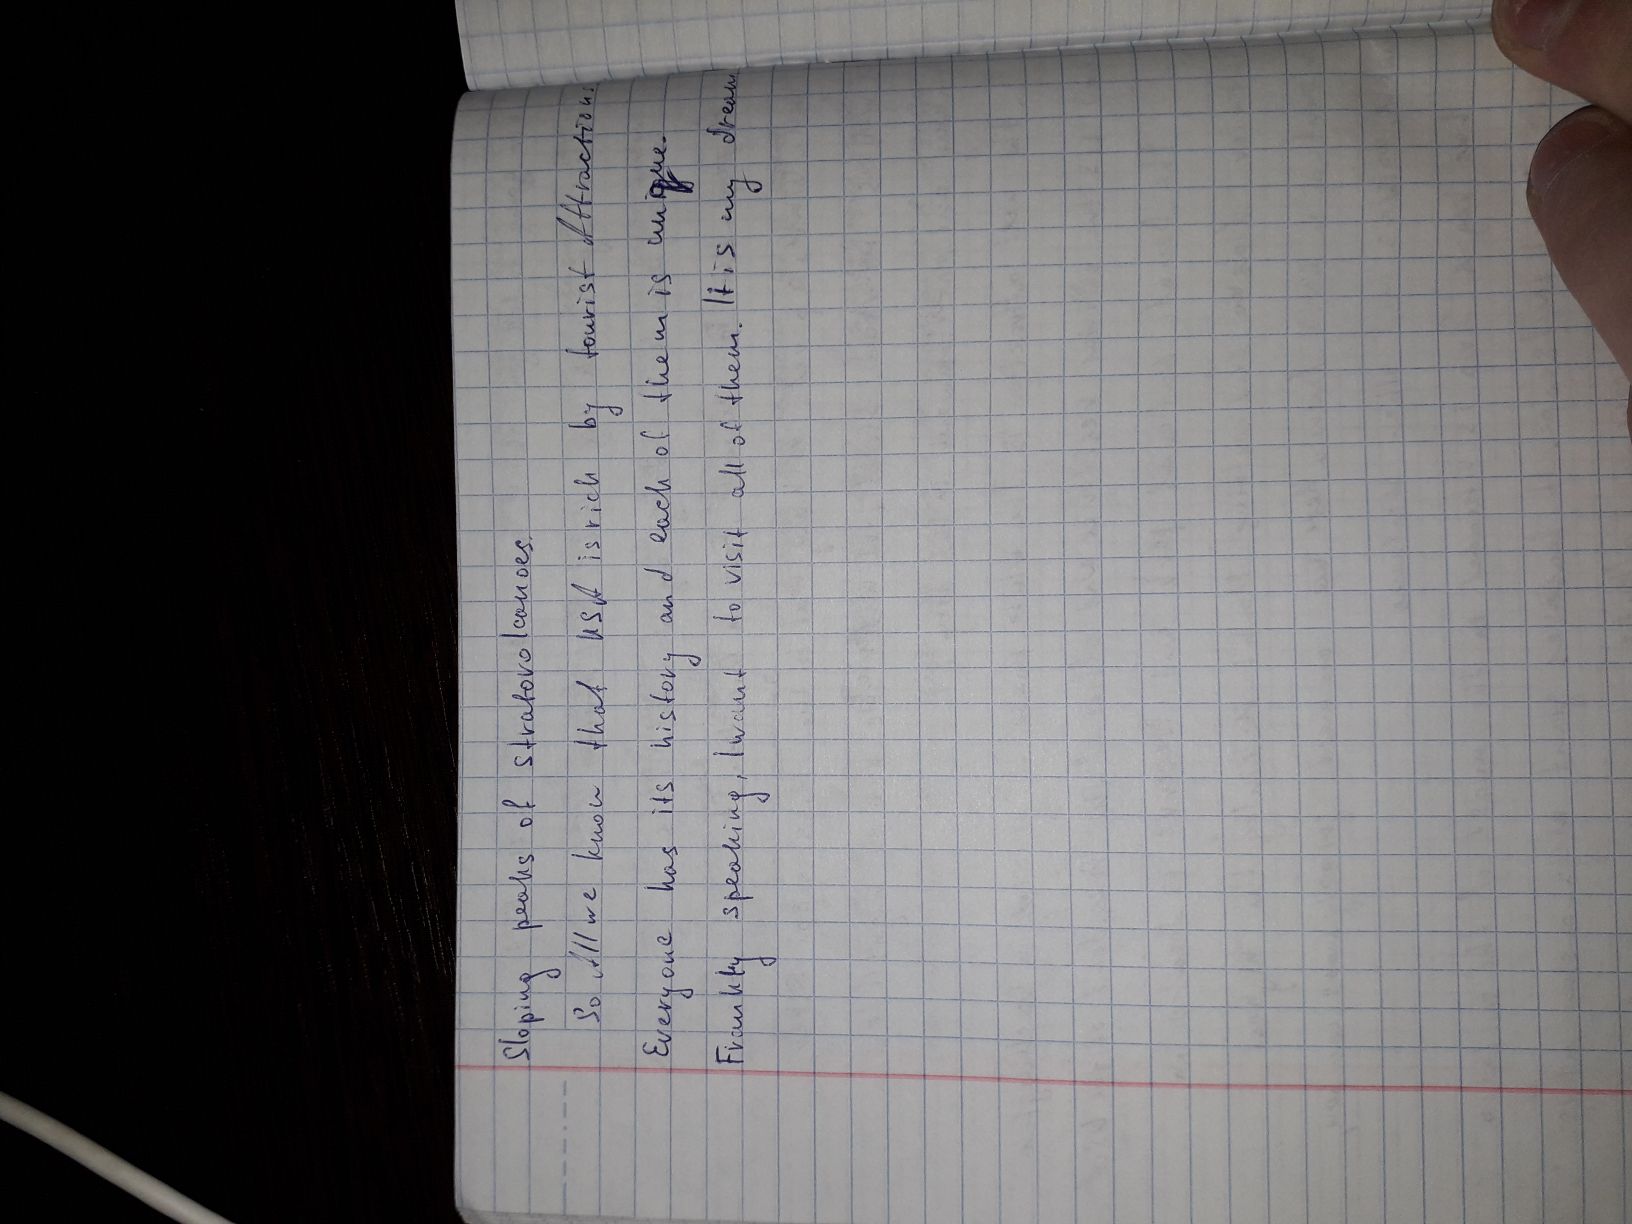 Sloping peaks of stratovolcanoes.
So All we know that USA is rich by tourist attractions
Everyone has its history and each of them is unique.
Frankly speaking, I want to visit all of them. It is my dream